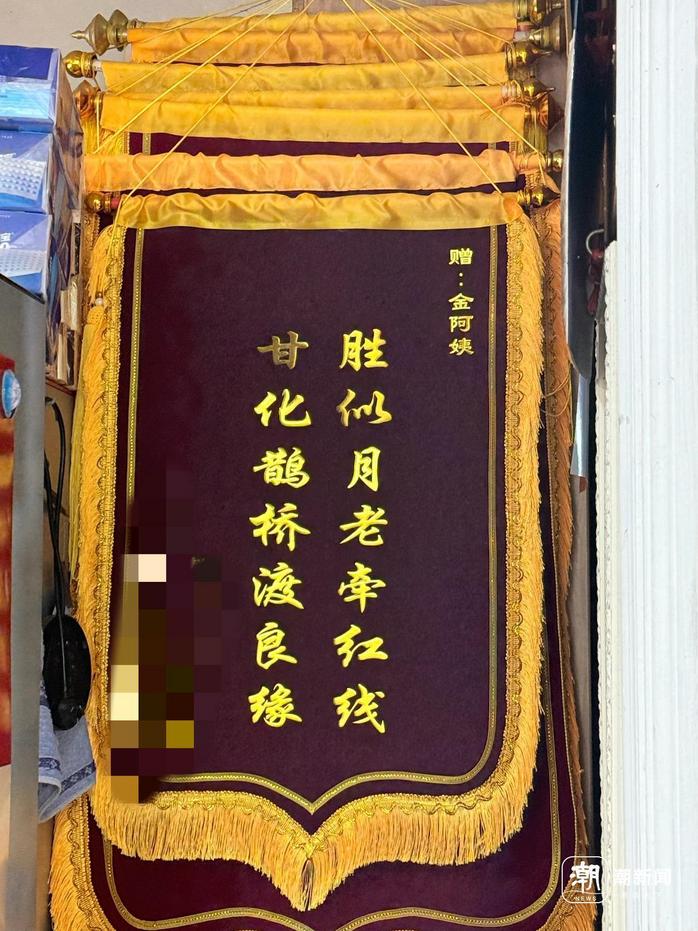 赠：金阿姨
胜似月老牵红线
甘化鹊桥渡良缘
潮
NEWS
潮新闻